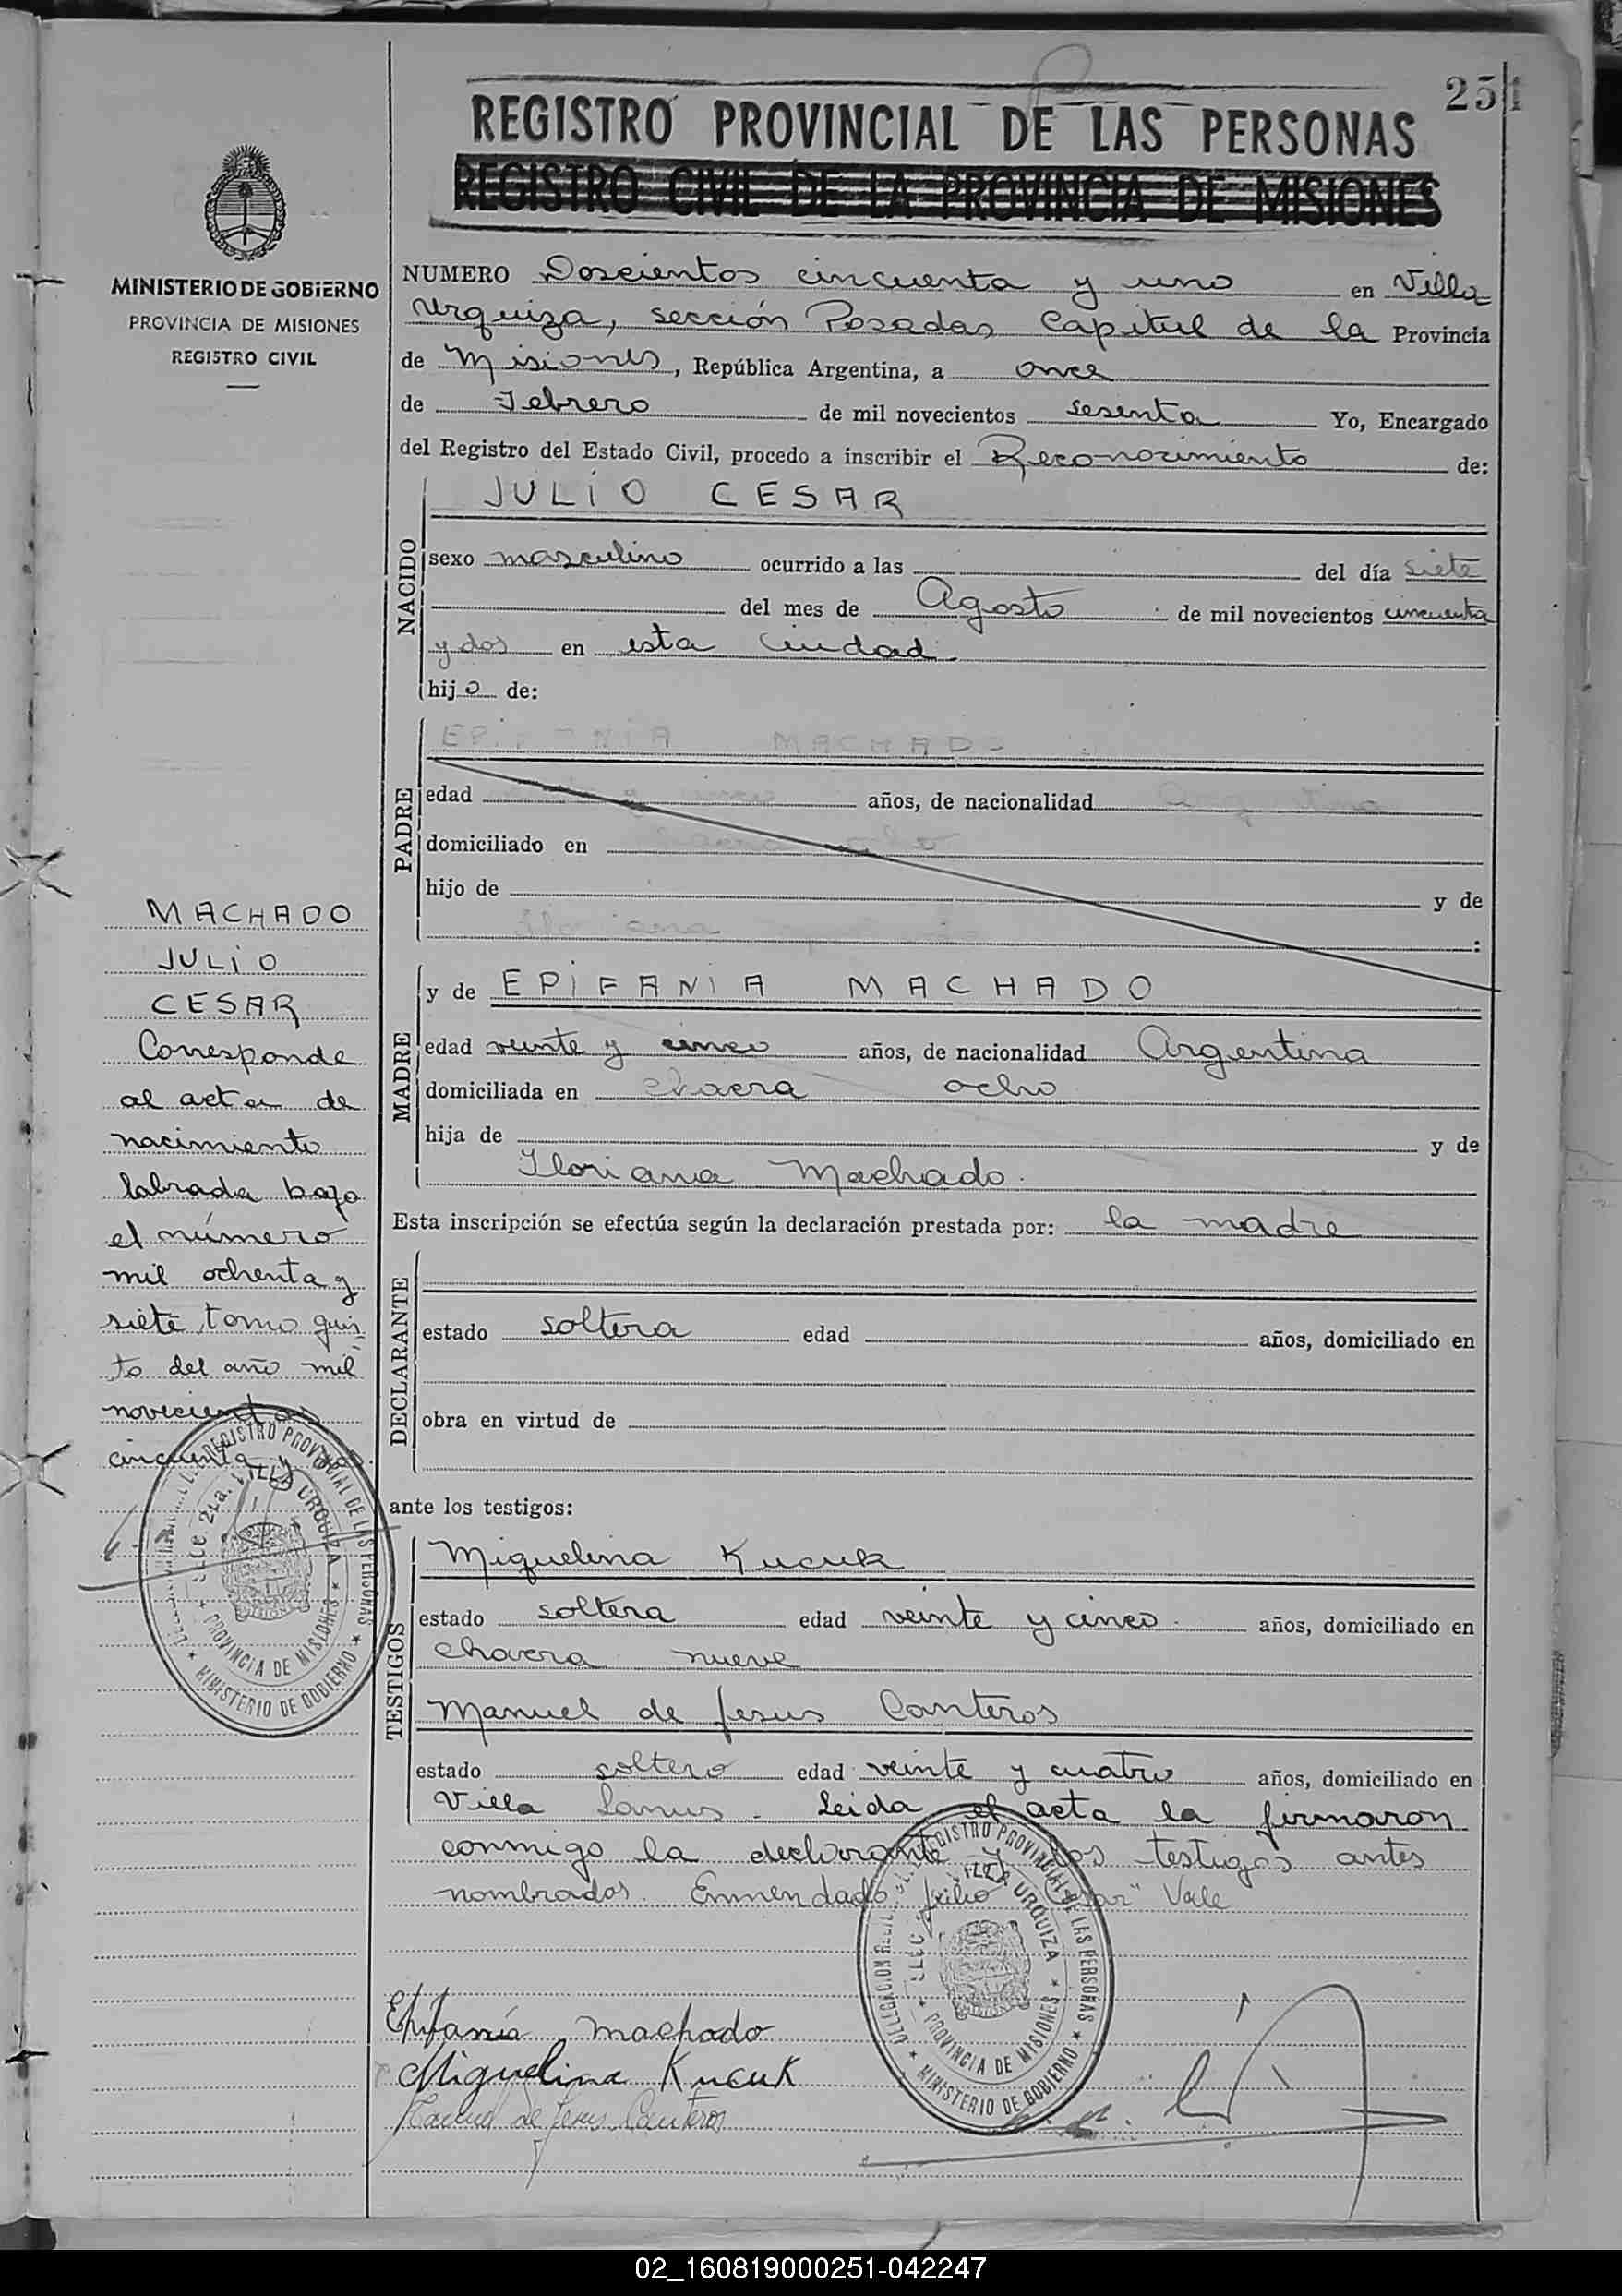 251
REGISTRO PROVINCIAL DE LAS PERSONAS
REGISTRO CIVIL DE LA PROVINCIA DE MISIONES
MINISTERIO DE GOBIERNO
PROVINCIA DE MISIONES
REGISTRO CIVIL
NUMERO Doscientos cincuenta y uno en Villa
Urquiza, sección Posadas Capital de la Provincia
de Misiones, República Argentina, a once
de Febrero de mil novecientos sesenta Yo, Encargado
del Registro del Estado Civil, procedo a inscribir el Reconocimiento de:
NACIDO
JULIO CESAR
sexo masculino ocurrido a las del día siete
del mes de Agosto de mil novecientos cincuenta
y dos en esta Ciudad
hijo de:
PADRE
EPIFANIA MACHADO
edad años, de nacionalidad Argentina
domiciliado en
hijo de y de
Floriana
MADRE
y de EPIFANIA MACHADO
edad veinte y cinco años, de nacionalidad Argentina
domiciliada en chacra ocho
hija de y de
Floriana Machado.
Esta inscripción se efectúa según la declaración prestada por: la madre
DECLARANTE
estado soltera edad años, domiciliado en
obra en virtud de
ante los testigos:
TESTIGOS
Miguelina Kucuk
estado soltera edad veinte y cinco. años, domiciliado en
chacra nueve
Manuel de Jesus Canteros
estado soltero edad veinte y cuatro años, domiciliado en
Villa Lanus. Leida el acta la firmaron
conmigo la declarante y los testigos antes
nombrados. Emmendado "Julio Cesar" Vale
Epifanía Machado
Miguelina Kucuk
Manuel de Jesus Canteros
MACHADO
JULIO
CESAR
Corresponde
al acta de
nacimiento
labrada bajo
el número
mil ochenta y
siete, tomo quin
to del año mil
novecientos
cincuenta y dos.
REGISTRO PROVINCIAL DE LAS PERSONAS * MINISTERIO DE GOBIERNO *
VILLA URQUIZA * PROVINCIA DE MISIONES *
DELEGACION REGISTRO PROVINCIAL DE LAS PERSONAS * MINISTERIO DE GOBIERNO *
VILLA URQUIZA * PROVINCIA DE MISIONES *
02_160819000251-042247